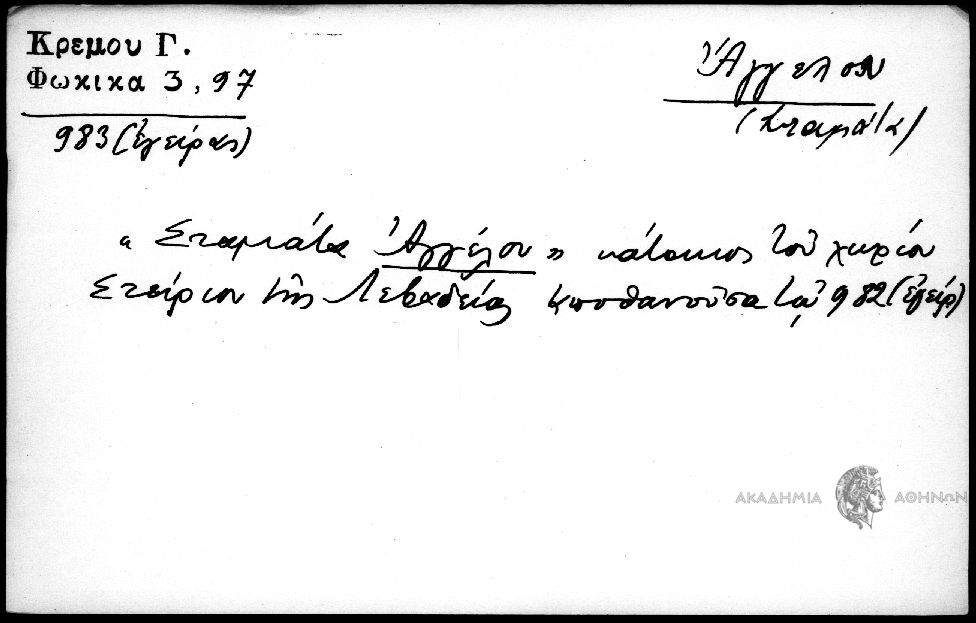 Κρεμου Γ.
Φωκικα 3, 97
983 (Ἐγείρας)
Ἀγγέλου
(Σταμάτα)
« Σταμάτα Ἀγγέλου » κάτοικος τοῦ χωρίου
Στείριου τῆς Λεβαδείας ἀποθανοῦσα τῷ 982 (ἐγείρ)
ΑΚΑΔΗΜΙΑ ΑΘΗΝΩΝ